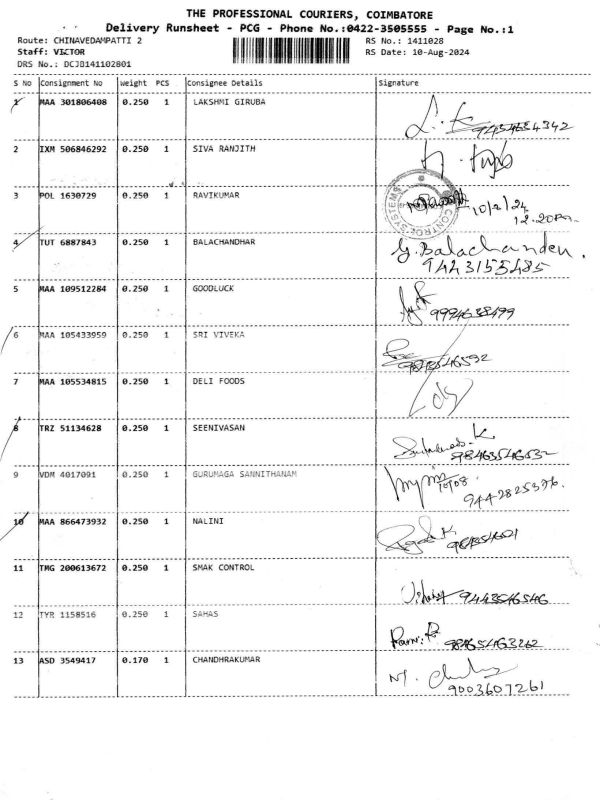 THE PROFESSIONAL COURIERS, COIMBATORE
Delivery Runsheet - PCG - Phone No.:0422-3505555 - Page No.:1
Route: CHINAVEDAMPATTI 2
RS No.: 1411028
Staff: VICTOR
RS Date: 10-Aug-2024
DRS No.: DCJB141102801
S No Consignment No Weight PCS Consignee Details Signature
1 MAA 301806408 0.250 1 LAKSHMI GIRUBA
2 IXM 506846292 0.250 1 SIVA RANJITH
3 POL 1630729 0.250 1 RAVIKUMAR
CONTROL SYSTEMS
12.20
4 TUT 6887843 0.250 1 BALACHANDHAR G. Balachander.
9443155485
5 MAA 109512284 0.250 1 GOODLUCK
9994638499
6 MAA 105433959 0.250 1 SRI VIVEKA
7 MAA 105534815 0.250 1 DELI FOODS
8 TRZ 51134628 0.250 1 SEENIVASAN
9 VDM 4017091 0.250 1 GURUMAGA SANNITHANAM
10/08
9442825376.
10 MAA 866473932 0.250 1 NALINI
11 TMG 200613672 0.250 1 SMAK CONTROL
9443546546
12 TYR 1158516 0.250 1 SAHAS
13 ASD 3549417 0.170 1 CHANDHRAKUMAR
9003607261